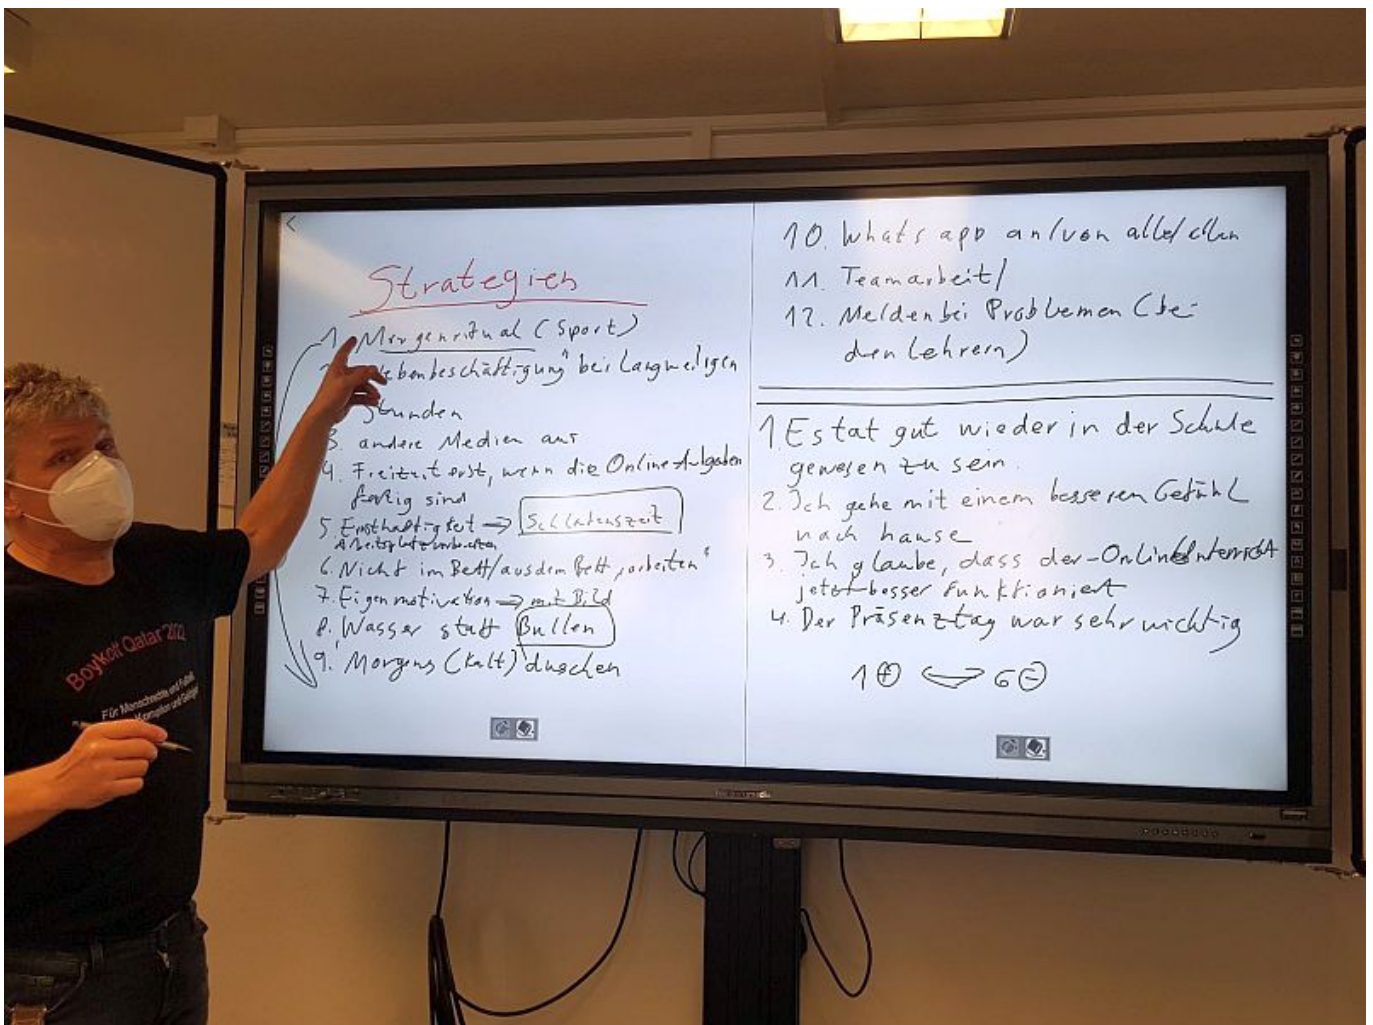 Strategien
1. Morgenritual (Sport)
"Nebenbeschäftigung" bei langweiligen
Stunden
3. andere Medien aus
4. Freizeit erst, wenn die Online-Aufgaben
fertig sind
5. Ernsthaftigkeit → Schlafenszeit
Arbeitsplatz vorbereiten
6. Nicht im Bett/aus dem Bett "arbeiten"
7. Eigenmotivation → mit Bild
8. Wasser statt Bullen
9. Morgens (kalt) duschen
10. Whats app an/von alle/allen
11. Teamarbeit/
12. Melden bei Problemen (bei
den Lehrern)
1 Es tat gut wieder in der Schule
gewesen zu sein.
2. Ich gehe mit einem besseren Gefühl
nach hause
3. Ich glaube, dass der Onlineunterricht
jetzt besser funktioniert
4. Der Präsenztag war sehr wichtig
1 + 6 -
Boykott Qatar 2022
Für Menschenrechte und Fußball
Korruption und Geldgier